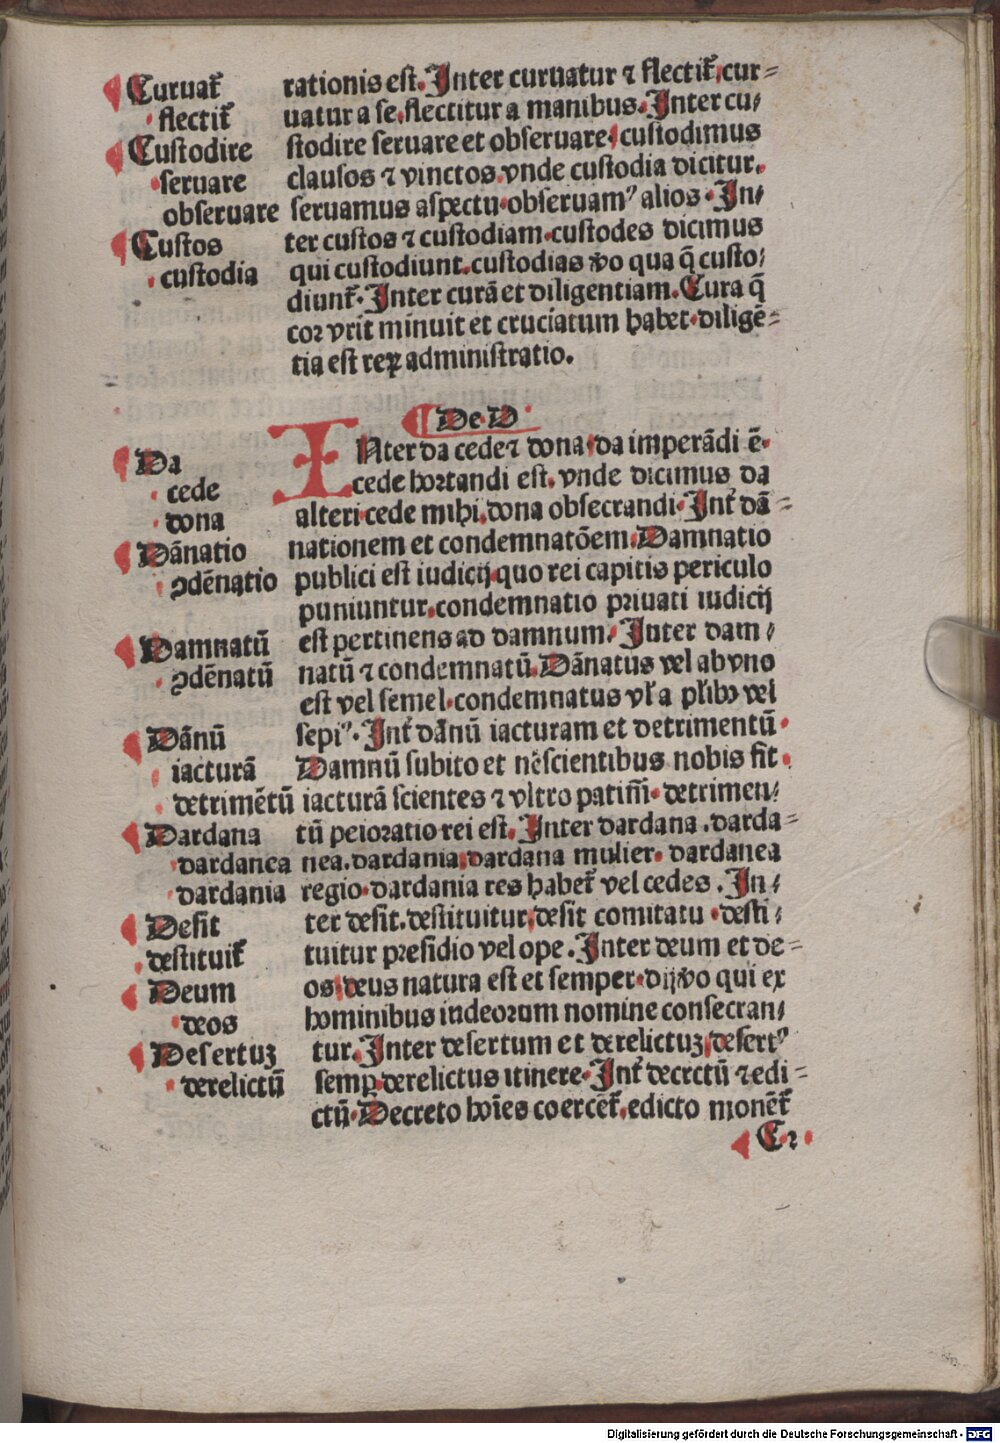 Curuat᷑
flectit᷑
Custodire
seruare
obseruare
Custos
custodia
rationis est. Inter curuatur ⁊ flectit᷑, cur⸗
uatur a se. flectitur a manibus. Inter cu/
stodire seruare et obseruare, custodimus
clausos ⁊ vinctos. vnde custodia dicitur.
seruamus aspectu. obseruamꝰ alios. In/
ter custos ⁊ custodiam. custodes dicimus
qui custodiunt. custodias v̄o qua q̄ custo/
diunt᷑. Inter curā et diligentiam. Cura q̄
cor vrit minuit et cruciatum habet. diligē⸗
tia est reꝝ administratio.
De D
Da
cede
dona
Dānatio
ꝯdēnatio
Damnatū
ꝯdēnatū
Dānū
iacturā
detrimētū
Dardana
dardanea
dardania
Desit
destituit᷑
Deum
deos
Desertuꝫ
derelictū
INter da cede ⁊ dona, da imperādi ē.
cede hortandi est. vnde dicimus da
alteri. cede mihi. dona obsecrandi. Int᷑ dā⸗
nationem et condemnatōem. Damnatio
publici est iudicij. quo rei capitis periculo
puniuntur. condemnatio priuati iudicij
est pertinens ad damnum. Inter dam/
natū ⁊ condemnatū. Dānatus vel ab vno
est vel semel. condemnatus vl᷑ a pl᷑ibꝫ vel
sepiꝰ. Int᷑ dānū iacturam et detrimentū.
Damnū subito et nescientibus nobis fit.
iacturā scientes ⁊ vltro patim̄. detrimen/
tū peioratio rei est. Inter dardana. darda⸗
nea. dardania. dardana mulier. dardanea
regio. dardania res habet᷑ vel cedes. In/
ter desit. destituitur. desit comitatu. desti/
tuitur presidio vel ope. Inter deum et de⸗
os. deus natura est et semper. dij v̄o qui ex
hominibus iudeorum nomine consecran/
tur. Inter desertum et derelictuꝫ, desertꝰ
semꝑ. derelictus itinere. Int᷑ decretū ⁊ edi⸗
ctū. Decreto hoīes coercēt᷑. edicto monēt᷑
Digitalisierung gefördert durch die Deutsche Forschungsgemeinschaft - DFG